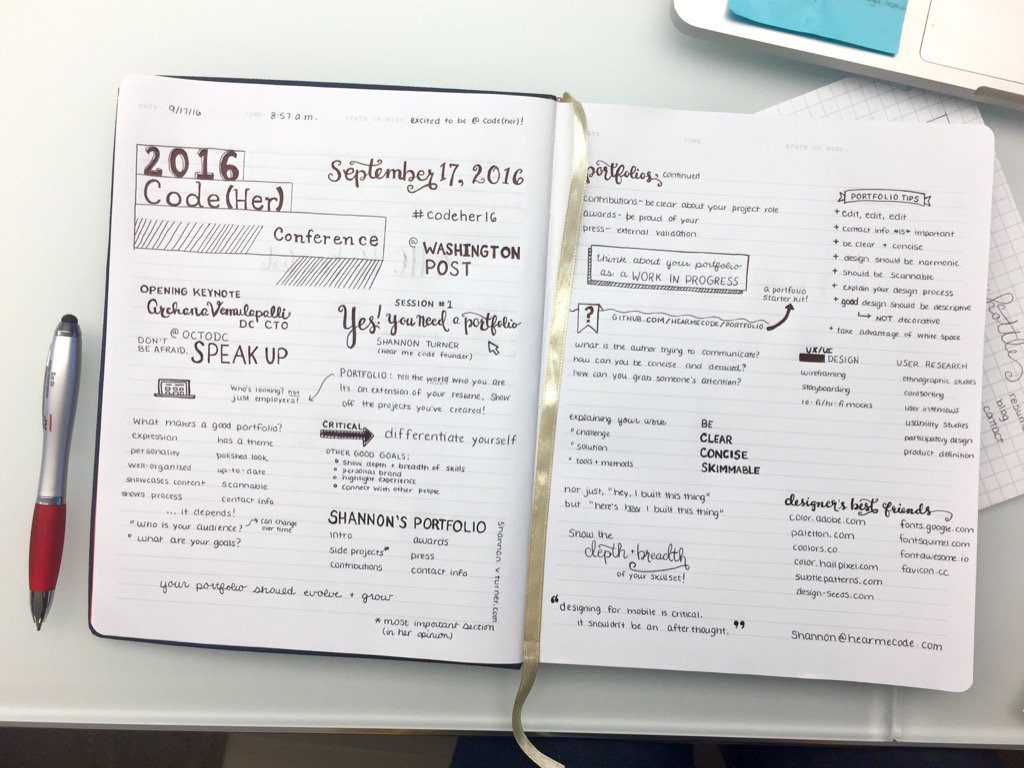 DATE: 9/17/16 TIME: 8:57 a.m. STATE OF MIND: excited to be @ code(her)!
2016
Code(Her)
Conference
September 17, 2016
#codeher16
@ WASHINGTON
POST
OPENING KEYNOTE
Archana Vemulapalli
DC CTO
@OCTODC
DON'T
BE AFRAID. SPEAK UP
SESSION #1
Yes! You need a portfolio
SHANNON TURNER
(hear me code founder)
Who's looking? not
just employers!
PORTFOLIO: tell the world who you are
It's an extension of your resume. Show
off the projects you've created!
What makes a good portfolio?
expression has a theme
personality polished look
well-organized up-to-date
showcases content scannable
shows process contact info
... it depends!
• who is your audience? can change
over time
• what are your goals?
CRITICAL differentiate yourself
OTHER GOOD GOALS:
• show depth + breadth of skills
• personal brand
• highlight experience
• connect with other people
SHANNON'S PORTFOLIO
intro awards
side projects* press
contributions contact info
shannon v turner.com
your portfolio should evolve + grow
* most important section
(in her opinion)
TIME: STATE OF MIND:
portfolios, continued
contributions- be clear about your project role
awards- be proud of your
press- external validation
think about your portfolio
as a WORK IN PROGRESS
a portfolio
starter kit!
? GITHUB.COM/HEARMECODE/PORTFOLIO
PORTFOLIO TIPS
+ edit, edit, edit
+ contact info *IS* important
+ be clear + concise
+ design should be harmonic
+ should be scannable
+ explain your design process
+ good design should be descriptive
NOT decorative
+ take advantage of white space
what is the author trying to communicate?
how can you be concise and detailed?
how can you grab someone's attention?
UX/UI
DESIGN
wireframing
storyboarding
lo-fi/hi-fi mocks
USER RESEARCH
ethnographic studies
card sorting
user interviews
usability studies
participatory design
product definition
explaining your work
• challenge
• solution
• tools + methods
BE
CLEAR
CONCISE
SKIMMABLE
not just, "hey, I built this thing"
but "here's how I built this thing"
Show the
depth + breadth
of your skillset!
designer's best friends
color.adobe.com fonts.google.com
paletton.com fontsquirrel.com
coolors.co fontawesome.io
color.hailpixel.com favicon.cc
subtlepatterns.com
design-seeds.com
"designing for mobile is critical.
it shouldn't be an afterthought."
Shannon@hearmecode.com
blog
contact